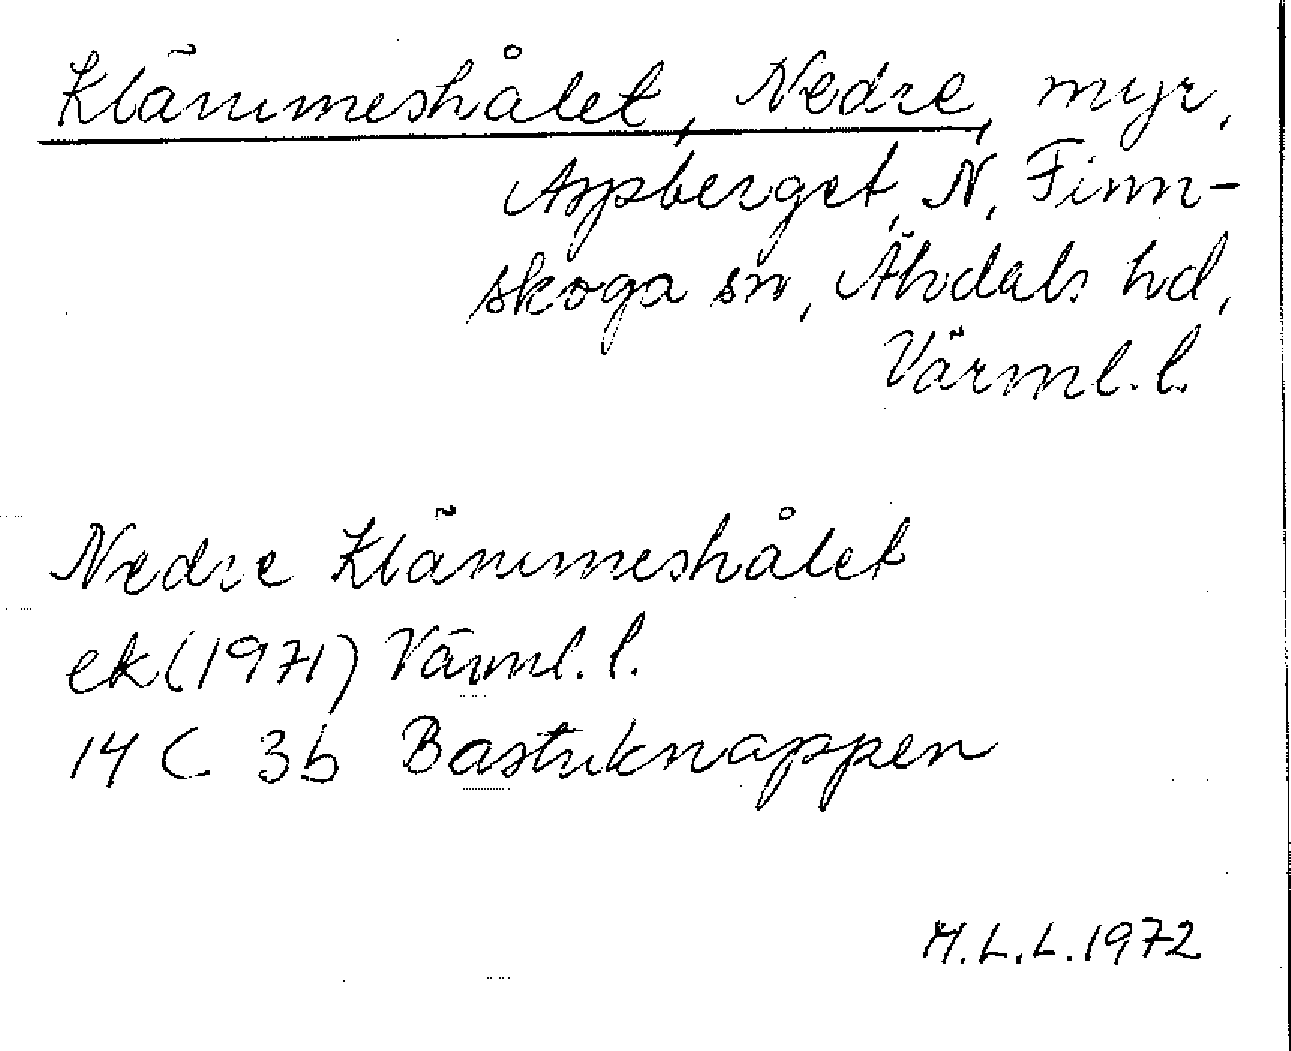 Klämmeshålet, Nedre, myr,
Aspberget, N. Finn-
skoga sn, Älvdals hd,
Värml. l.
Nedre Klämmeshålet
ek (1971) Värml. l.
14 C 3b Bastuknappen
M.L.L. 1972